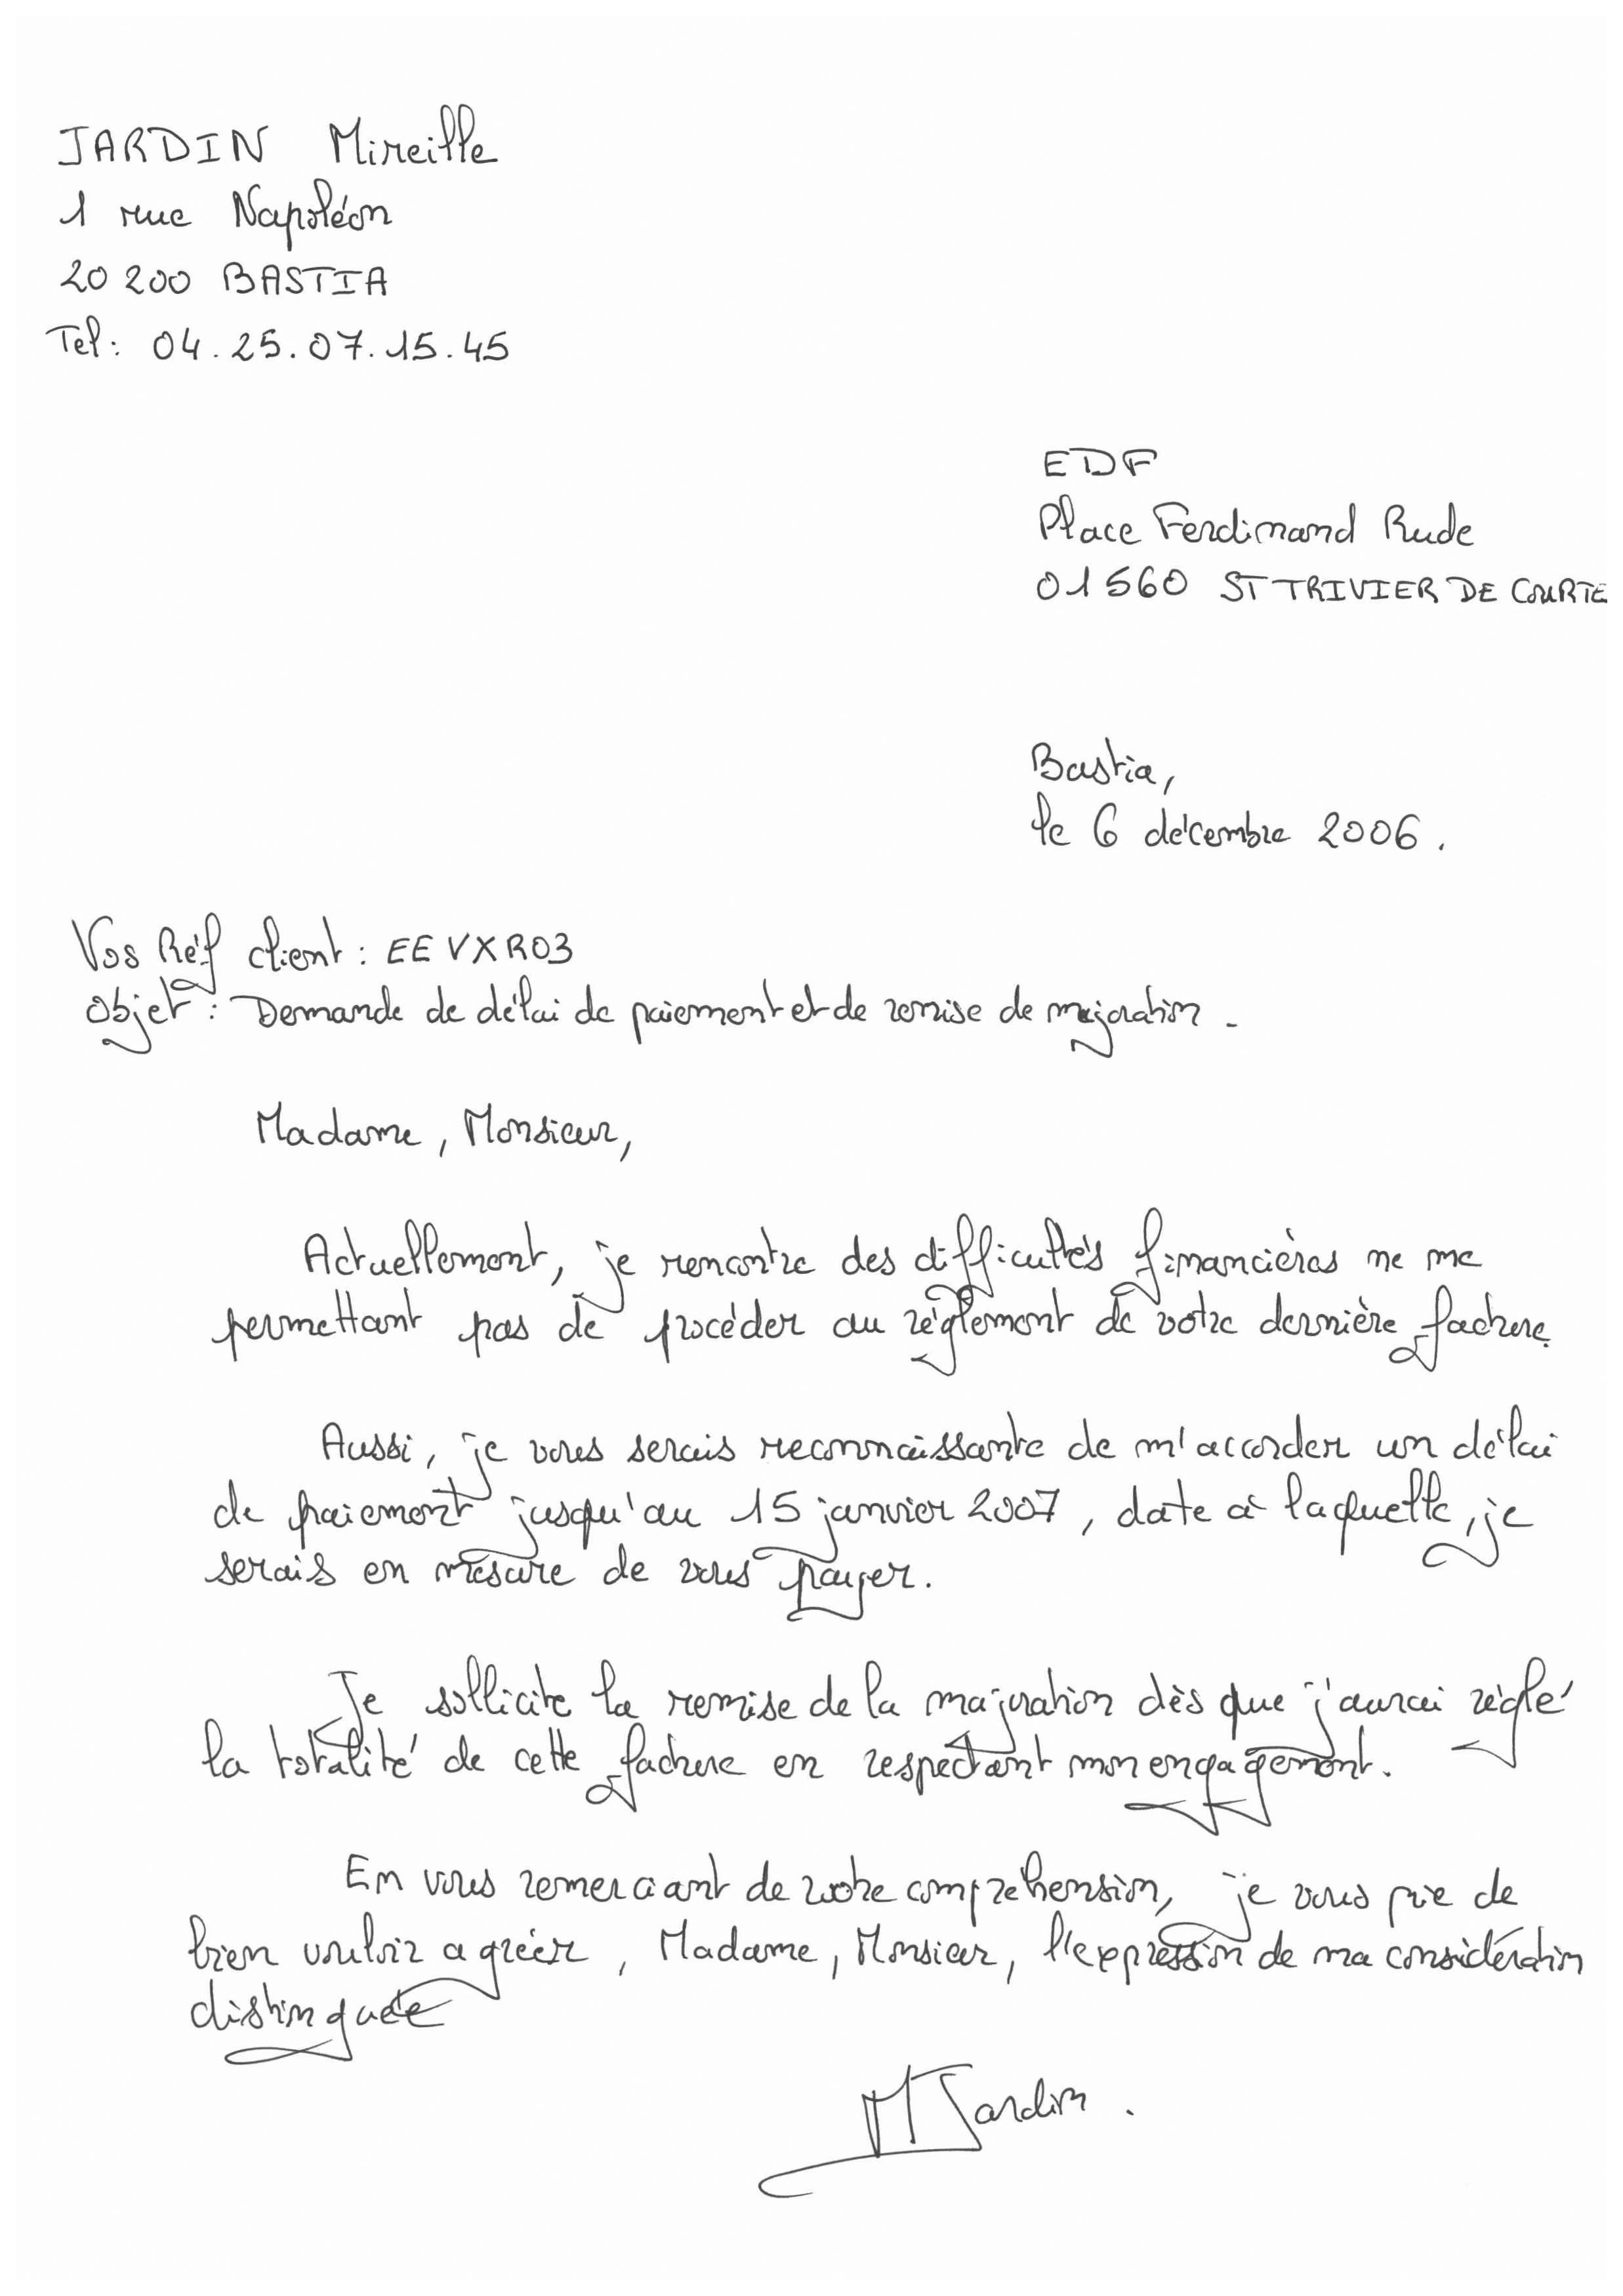 JARDIN Mireille
1 rue Napoléon
20 200 BASTIA
Tel: 04.25.07.15.45
EDF
Place Ferdinand Rude
01560 ST TRIVIER DE COURTE
Bastia,
le 6 décembre 2006.
Vos Réf client : EEVXR03
Objet : Demande de délai de paiement et de remise de majoration -
Madame, Monsieur,
Actuellement, je rencontre des difficultés financières ne me
permettant pas de procéder au règlement de votre dernière facture.
Aussi, je vous serais reconnaissante de m'accorder un délai
de paiement jusqu'au 15 janvier 2007, date à laquelle, je
serais en mesure de vous payer.
Je sollicite la remise de la majoration dès que j'aurai réglé
la totalité de cette facture en respectant mon engagement.
En vous remerciant de votre compréhension, je vous prie de
bien vouloir agréer, Madame, Monsieur, l'expression de ma considération
distinguée
M Jardin.